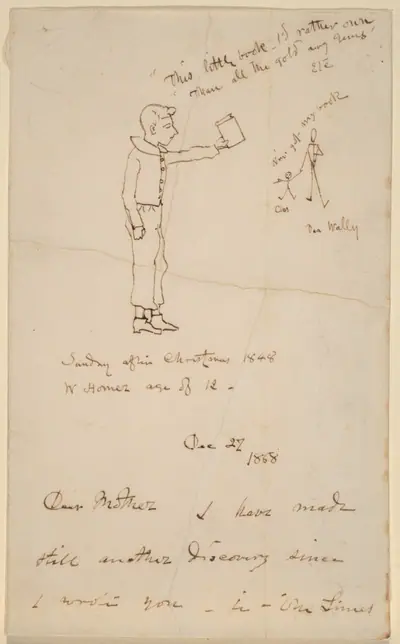 "This little book - I'd rather own
"than all the gold any
Now get my rock
Dea Wally
Sunday after Christmas 1848
W Homer age of 12 -
Dec 27
1888
Dear Mother I have made
still another discovery since
I wrote you - in - The Times